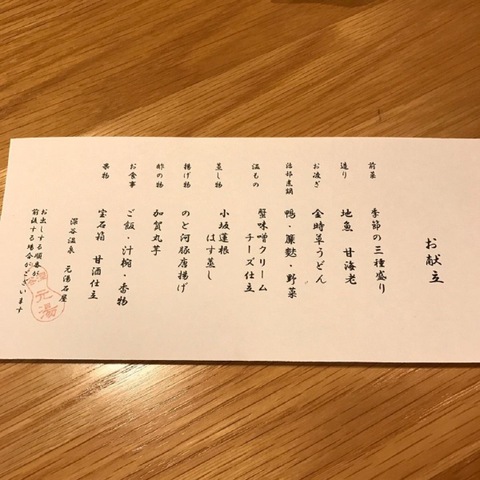 お献立
前菜 季節の三種盛り
造り 地魚 甘海老
お凌ぎ 金時草うどん
治部煮鍋 鴨・簾麩・野菜
温もの 蟹味噌クリーム
チーズ仕立
蒸し物 小坂蓮根
はす蒸し
揚げ物 のと河豚唐揚げ
酢の物 加賀丸芋
お食事 ご飯・汁椀・香物
果物 宝石箱 甘酒仕立
深谷温泉 元湯石屋
お出しする順番が
前後する場合がございます
元湯